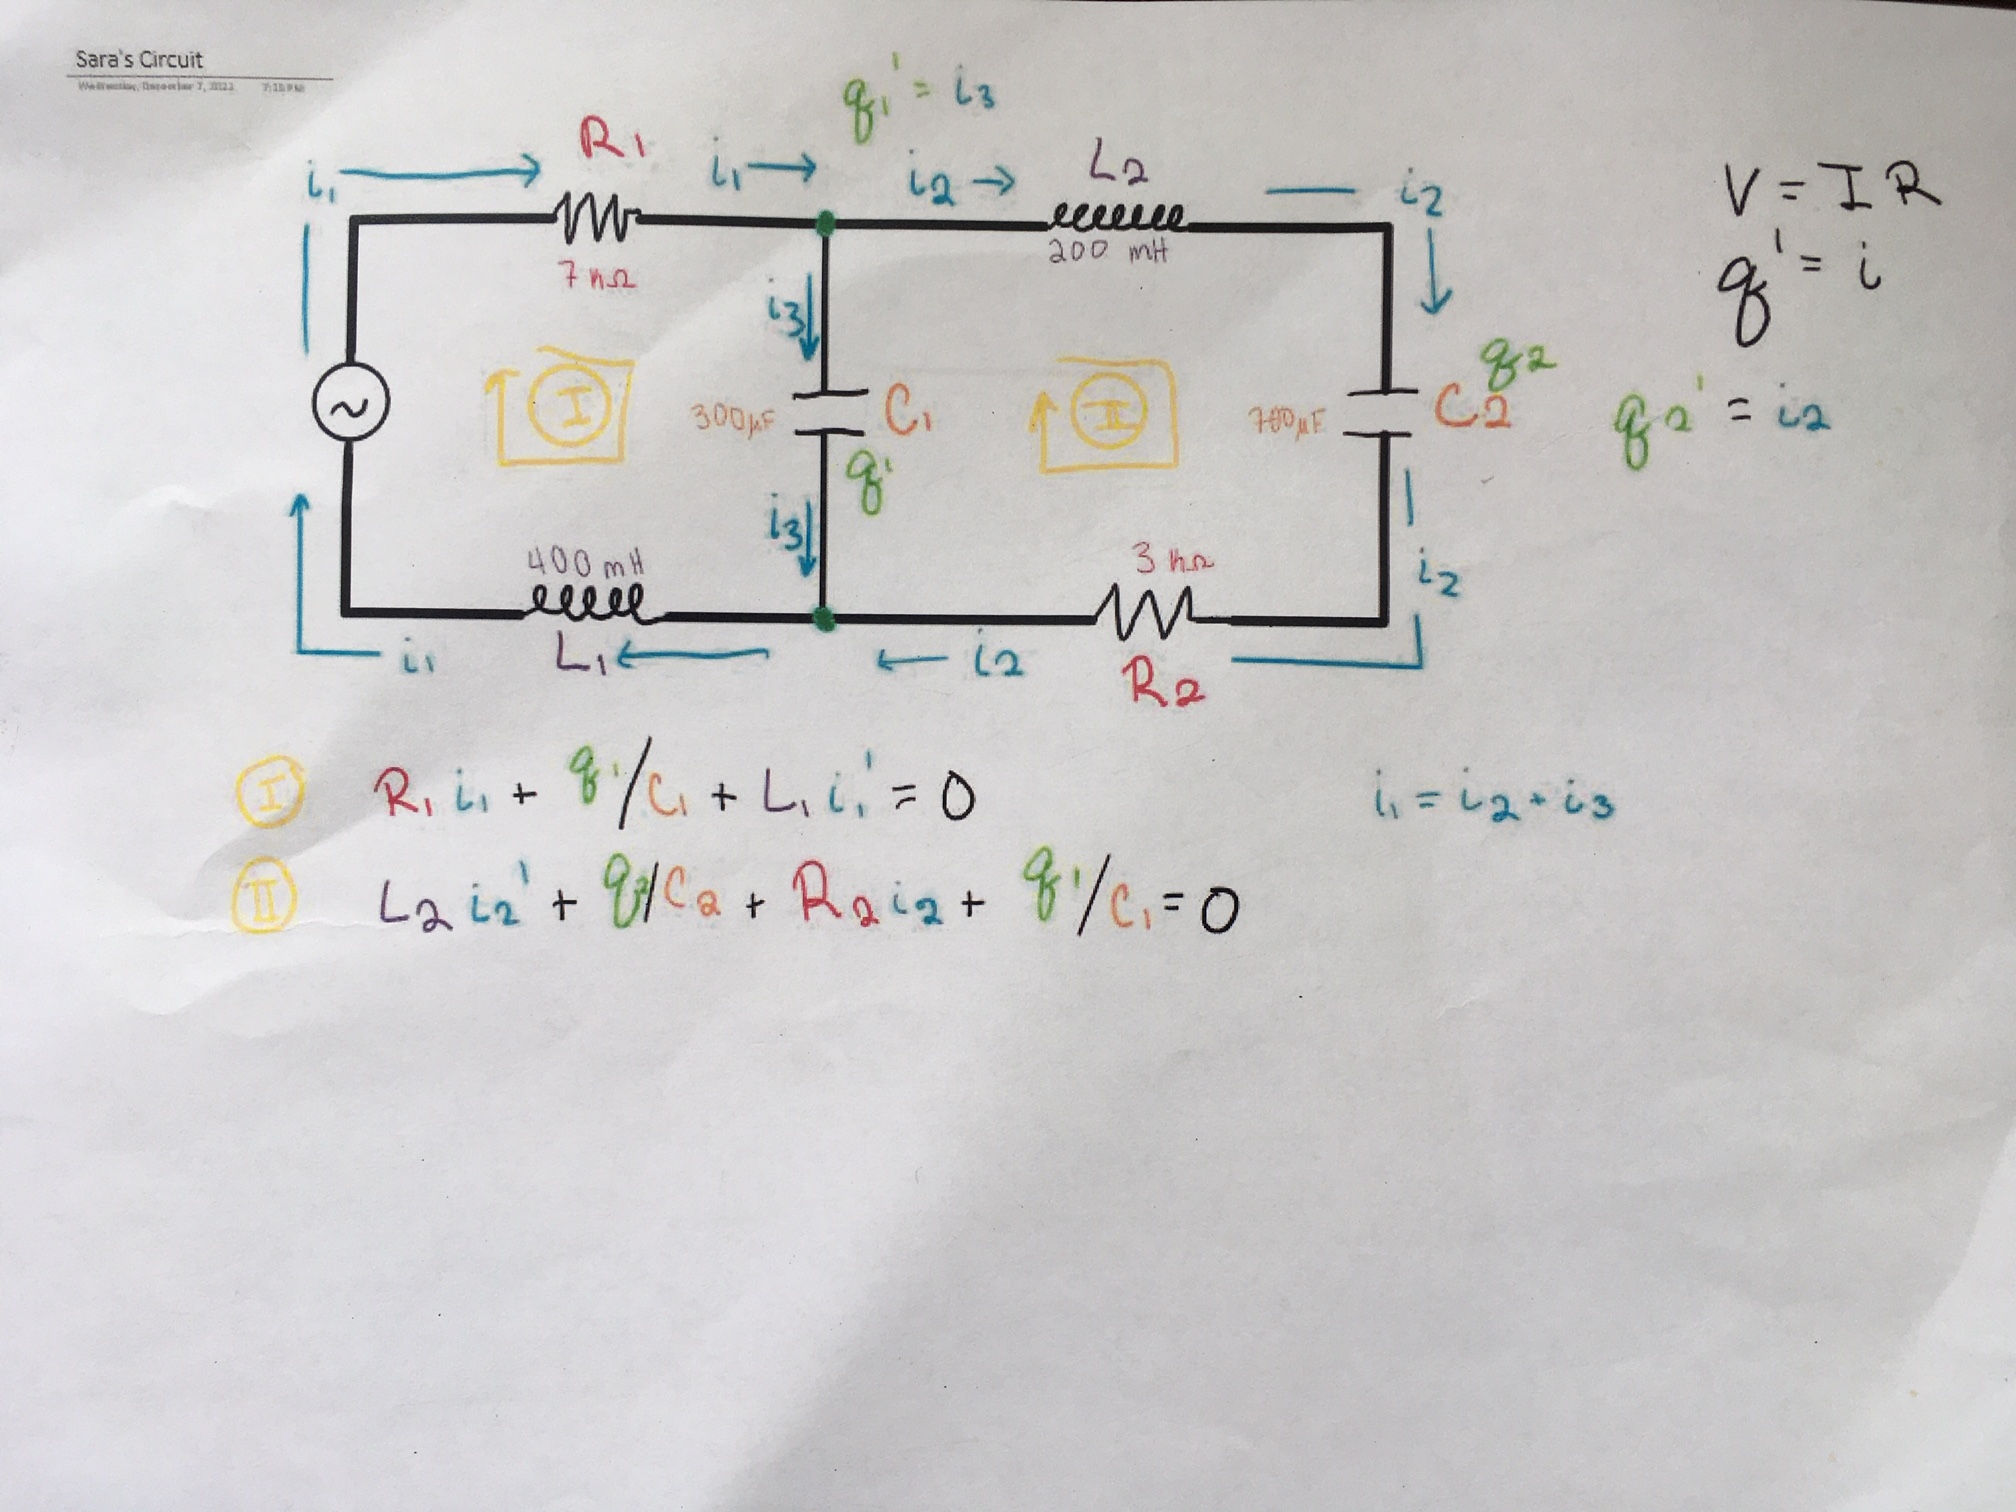 Sara's Circuit
Wednesday, December 7, 2022 7:18 PM
q₁' = i₃
R₁
i₁ i₁ i₂ L₂ i₂
V = I R
200 mH
7 kΩ
q' = i
i₃
q₂
I II
300μF C₁ 700μF C₂
q₂' = i₂
q₁
i₃
400 mH 3 kΩ
i₂
i₁ L₁ i₂
R₂
I R₁ i₁ + q₁/C₁ + L₁ i₁' = 0 i₁ = i₂ + i₃
II L₂ i₂' + q₂/C₂ + R₂ i₂ + q₁/C₁ = 0